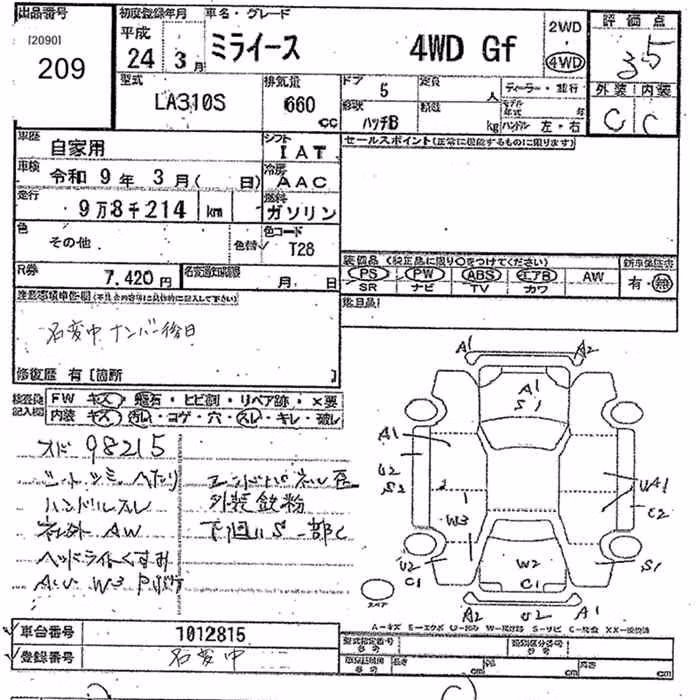 出品番号
[2090]
209
初度登録年月
平成
24年 3月
車名・グレード
ミライース 4WD Gf
2WD
・
4WD
評価点
3.5
外装 内装
C C
型式
LA310S
排気量
660 cc
ドア 5
定員 人
形状 ハッチB
積載 kg
ディーラー・並行
モデル年式 年
ハンドル 左・右
車歴 自家用
シフト IAT
車検 令和 9年 3月( 日)
冷房 AAC
走行 9万8千214 km
燃料 ガソリン
色 その他
色替
色コード T28
R券 7,420円
名変通知期限 月 日
セールスポイント(正常に機能するものに限ります)
装備品 (純正品に限り○をつけてください)
PS PW ABS エアB AW
SR ナビ TV カワ
新車保証書
有・無
鑑目品
名変中 ナンバー後日
修復歴 有 [箇所
検査員記入欄
FW キズ・飛石・ヒビ割・リペア跡・×要
内装 キズ・汚れ・コゲ・穴・スレ・キレ・破レ
オド 98215
シートシミヘタリ
ハンドルスレ
社外AW
ヘッドライトくすみ
外装鉄粉
下廻りS 一部C
A1 A2
A1
S1
A1
U2
S2
2
1
W3
U2
C1
UA1
C2
S1
W2
C1
A2 U2 A1
スペア
A-キズ E-エクボ U-凹み W-波打跡 S-サビ C-腐食 XX-交換済
車台番号 1012815
登録番号 名変中
型式指定番号 参考
類別区分番号 参考
長さ cm
幅 cm
高さ cm